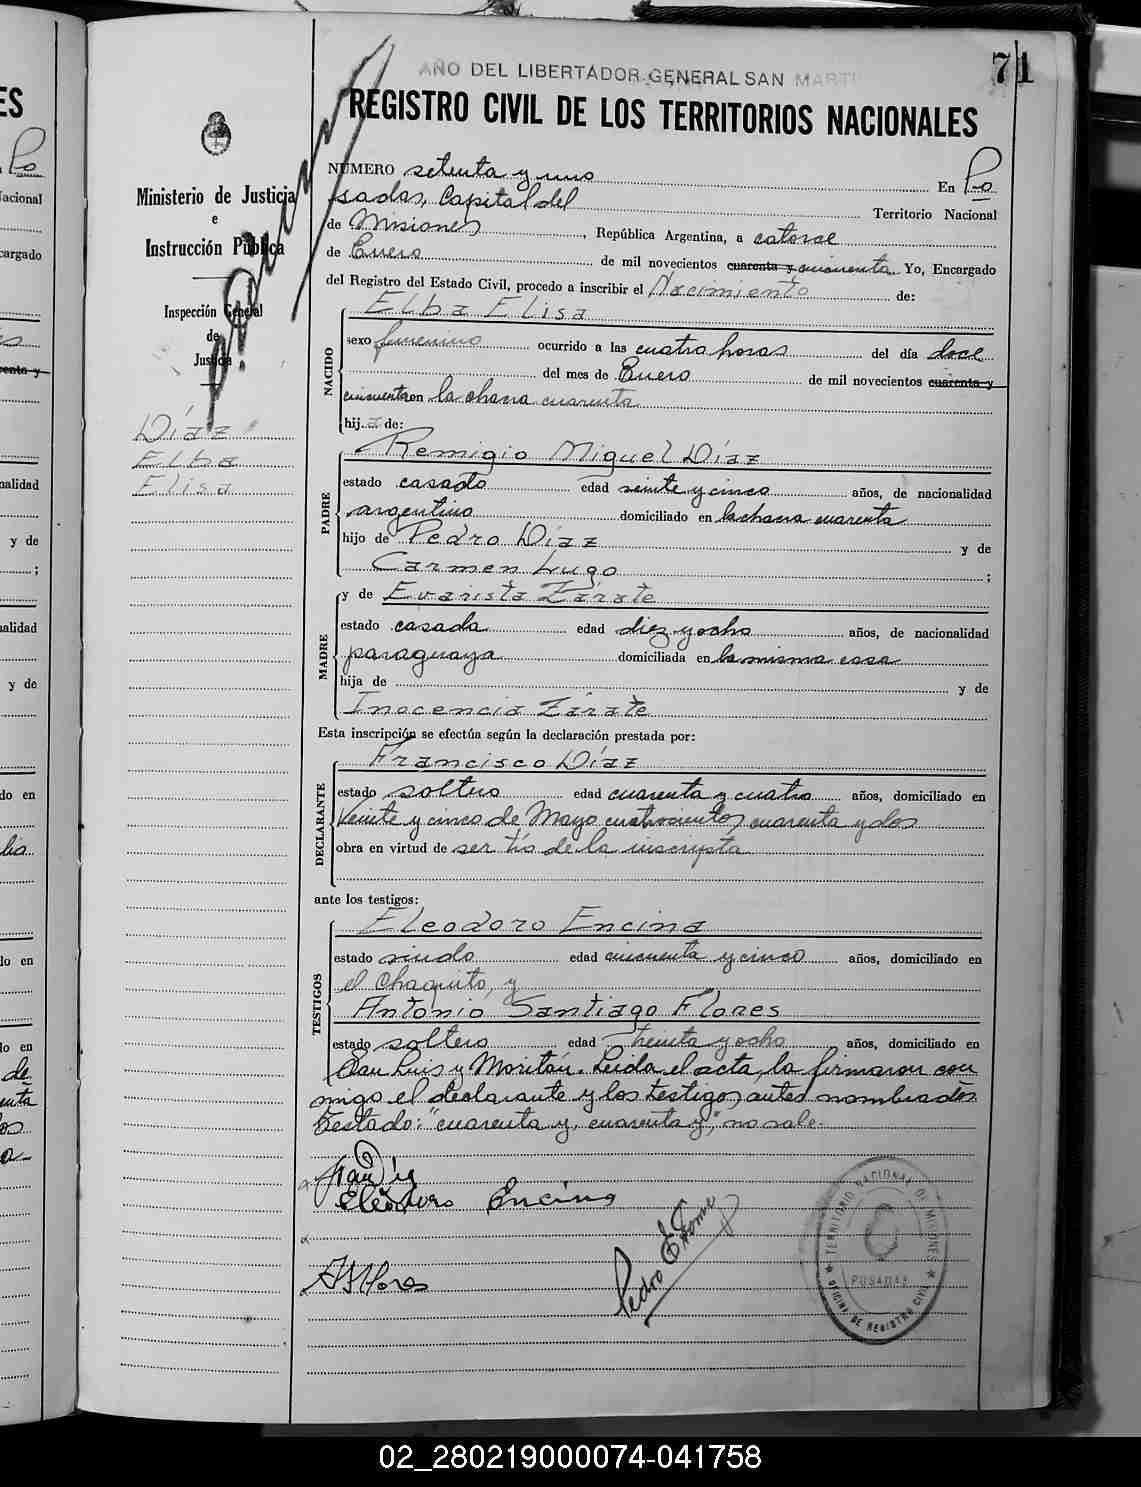 71
AÑO DEL LIBERTADOR GENERAL SAN MARTI
REGISTRO CIVIL DE LOS TERRITORIOS NACIONALES
Ministerio de Justicia
e
Instrucción Pública
Inspección General
de
Justicia
Díaz
Elba
Elisa
NÚMERO setenta y uno En Po
sadas, Capital del Territorio Nacional
de Misiones, República Argentina, a catorce
de Enero de mil novecientos cuarenta y cincuenta Yo, Encargado
del Registro del Estado Civil, procedo a inscribir el Nacimiento de:
Elba Elisa
NACIDO
sexo femenino ocurrido a las cuatro horas del día doce
del mes de Enero de mil novecientos cuarenta y
cincuenta en la chacra cuarenta
hij a de:
Remigio Miguel Díaz
PADRE
estado casado edad veinte y cinco años, de nacionalidad
argentino domiciliado en la chacra cuarenta
hijo de Pedro Díaz y de
Carmen Lugo ;
y de Evarista Zárate
MADRE
estado casada edad diez y ocho años, de nacionalidad
paraguaya domiciliada en la misma casa
hija de y de
Inocencia Zárate
Esta inscripción se efectúa según la declaración prestada por:
Francisco Díaz
DECLARANTE
estado soltero edad cuarenta y cuatro años, domiciliado en
Veinte y cinco de Mayo cuatrocientos cuarenta y dos
obra en virtud de ser tío de la inscripta
ante los testigos:
Eleodoro Encina
TESTIGOS
estado viudo edad cincuenta y cinco años, domiciliado en
el Chaquito, y
Antonio Santiago Flores
estado soltero edad treinta y ocho años, domiciliado en
San Luis y Moritán. Leída el acta, la firmaron con
migo el declarante y los testigos antes nombrados.
Testado: "cuarenta y, cuarenta y", no vale.
Eleodoro Encina
ASFlores
Pedro E
TERRITORIO NACIONAL DE MISIONES
POSADAS
OFICINA DE REGISTRO CIVIL
02_280219000074-041758